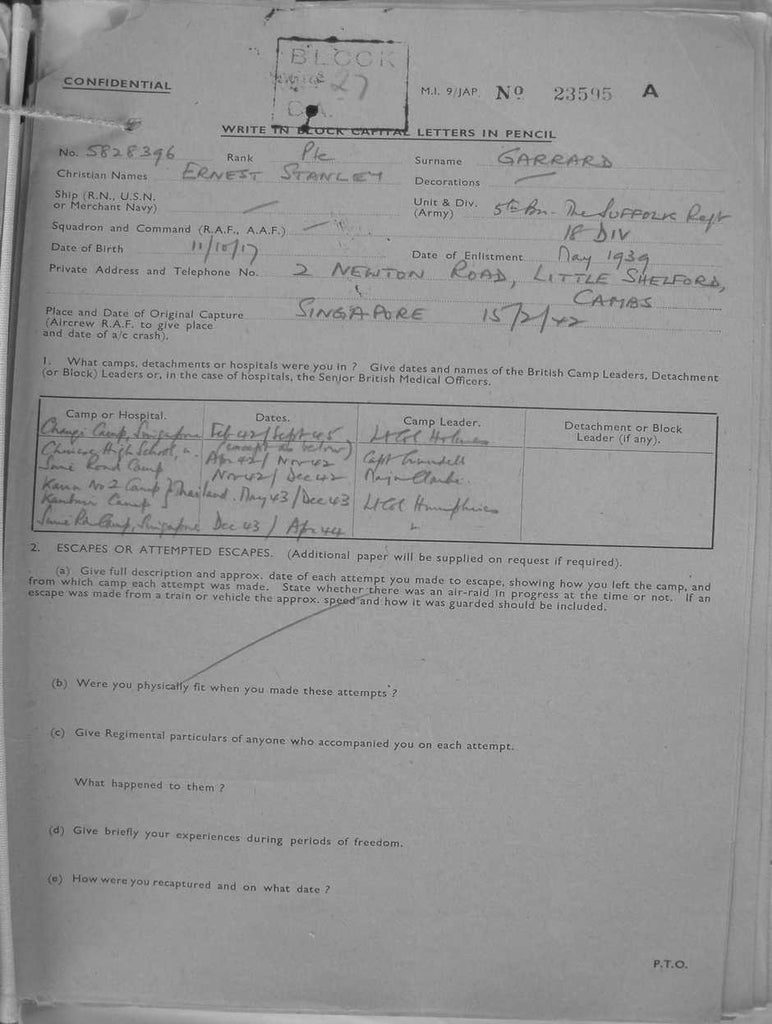 BLOCK
27
CONFIDENTIAL
M.I. 9/JAP. No 23595 A
WRITE IN BLOCK CAPITAL LETTERS IN PENCIL
No. 5828396 Rank Pte Surname GARRARD
Christian Names ERNEST STANLEY Decorations —
Ship (R.N., U.S.N. or Merchant Navy) —
Unit & Div. (Army) 5th Bn. The SUFFOLK Regt
18 DIV
Squadron and Command (R.A.F., A.A.F.) —
Date of Birth 11/10/17 Date of Enlistment May 1939
Private Address and Telephone No. 2 NEWTON ROAD, LITTLE SHELFORD,
CAMBS
Place and Date of Original Capture SINGAPORE 15/2/42
(Aircrew R.A.F. to give place
and date of a/c crash).
1. What camps, detachments or hospitals were you in ? Give dates and names of the British Camp Leaders, Detachment
(or Block) Leaders or, in the case of hospitals, the Senior British Medical Officers.
Camp or Hospital. Dates. Camp Leader. Detachment or Block
Leader (if any).
Changi Camp, Singapore Feb 42/Sept 45 Lt Col Holmes
(except as below)
Chinese High School, Apr 42/ Nov 42 Capt
Sime Road Camp Nov 42/ Dec 42 Major Clarke.
Kanu No 2 Camp } Thailand. May 43/Dec 43 Lt Col Humphries
Kanburi Camp }
Sime Rd Camp, Singapore Dec 43 / Apr 44 "
2. ESCAPES OR ATTEMPTED ESCAPES. (Additional paper will be supplied on request if required).
(a) Give full description and approx. date of each attempt you made to escape, showing how you left the camp, and
from which camp each attempt was made. State whether there was an air-raid in progress at the time or not. If an
escape was made from a train or vehicle the approx. speed and how it was guarded should be included.
(b) Were you physically fit when you made these attempts ?
(c) Give Regimental particulars of anyone who accompanied you on each attempt.
What happened to them ?
(d) Give briefly your experiences during periods of freedom.
(e) How were you recaptured and on what date ?
P.T.O.